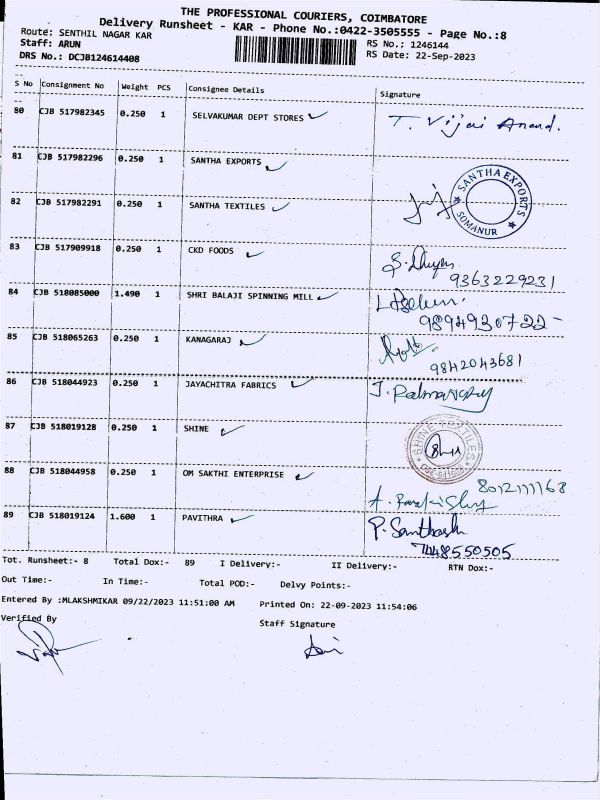 THE PROFESSIONAL COURIERS, COIMBATORE
Delivery Runsheet - KAR - Phone No.:0422-3505555 - Page No.:8
Route: SENTHIL NAGAR KAR
Staff: ARUN RS No.: 1246144
DRS No.: DCJB124614408 RS Date: 22-Sep-2023
S No Consignment No Weight PCS Consignee Details Signature
80 CJB 517982345 0.250 1 SELVAKUMAR DEPT STORES T. Vijai Anand.
81 CJB 517982296 0.250 1 SANTHA EXPORTS
SANTHA EXPORTS
SOMANUR
82 CJB 517982291 0.250 1 SANTHA TEXTILES
83 CJB 517909918 0.250 1 CKD FOODS
9363229231
84 CJB 518085000 1.490 1 SHRI BALAJI SPINNING MILL
9894930722
85 CJB 518065263 0.250 1 KANAGARAJ
9842043681
86 CJB 518044923 0.250 1 JAYACHITRA FABRICS
87 CJB 518019128 0.250 1 SHINE
SHINE TEXTILES
88 CJB 518044958 0.250 1 OM SAKTHI ENTERPRISE
8012111168
89 CJB 518019124 1.600 1 PAVITHRA P. Santhosh
7448550505
Tot. Runsheet:- 8 Total Dox:- 89 I Delivery:- II Delivery:- RTN Dox:-
Out Time:- In Time:- Total POD:- Delvy Points:-
Entered By :MLAKSHMIKAR 09/22/2023 11:51:00 AM Printed On: 22-09-2023 11:54:06
Verified By Staff Signature